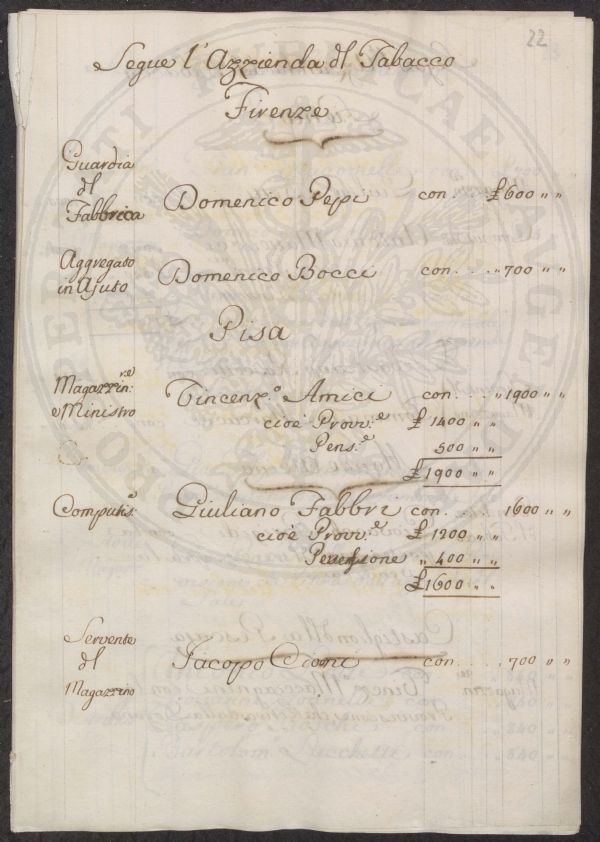 22
Segue l'Azzienda dl Tabacco
Firenze
Guardia
dl
Fabbrica
Domenico Pepi con. . . £ 600 " "
Aggregato
in Ajuto
Domenico Bocci con. . . " 700 " "
Pisa
Magazzin:re
e Ministro
Vincenz.o Amici con. . . " 1900 " "
cioè Provv.e £ 1400 " "
Pens.e 500 " "
£ 1900 " "
Computis:a
Giuliano Fabbri con. . . . 1600 " "
cioè Provv.e £ 1200 " "
Pensione " 400 " "
£ 1600 " "
Servente
dl
Magazzino
Jacopo Cioni con. . . . 700 " "